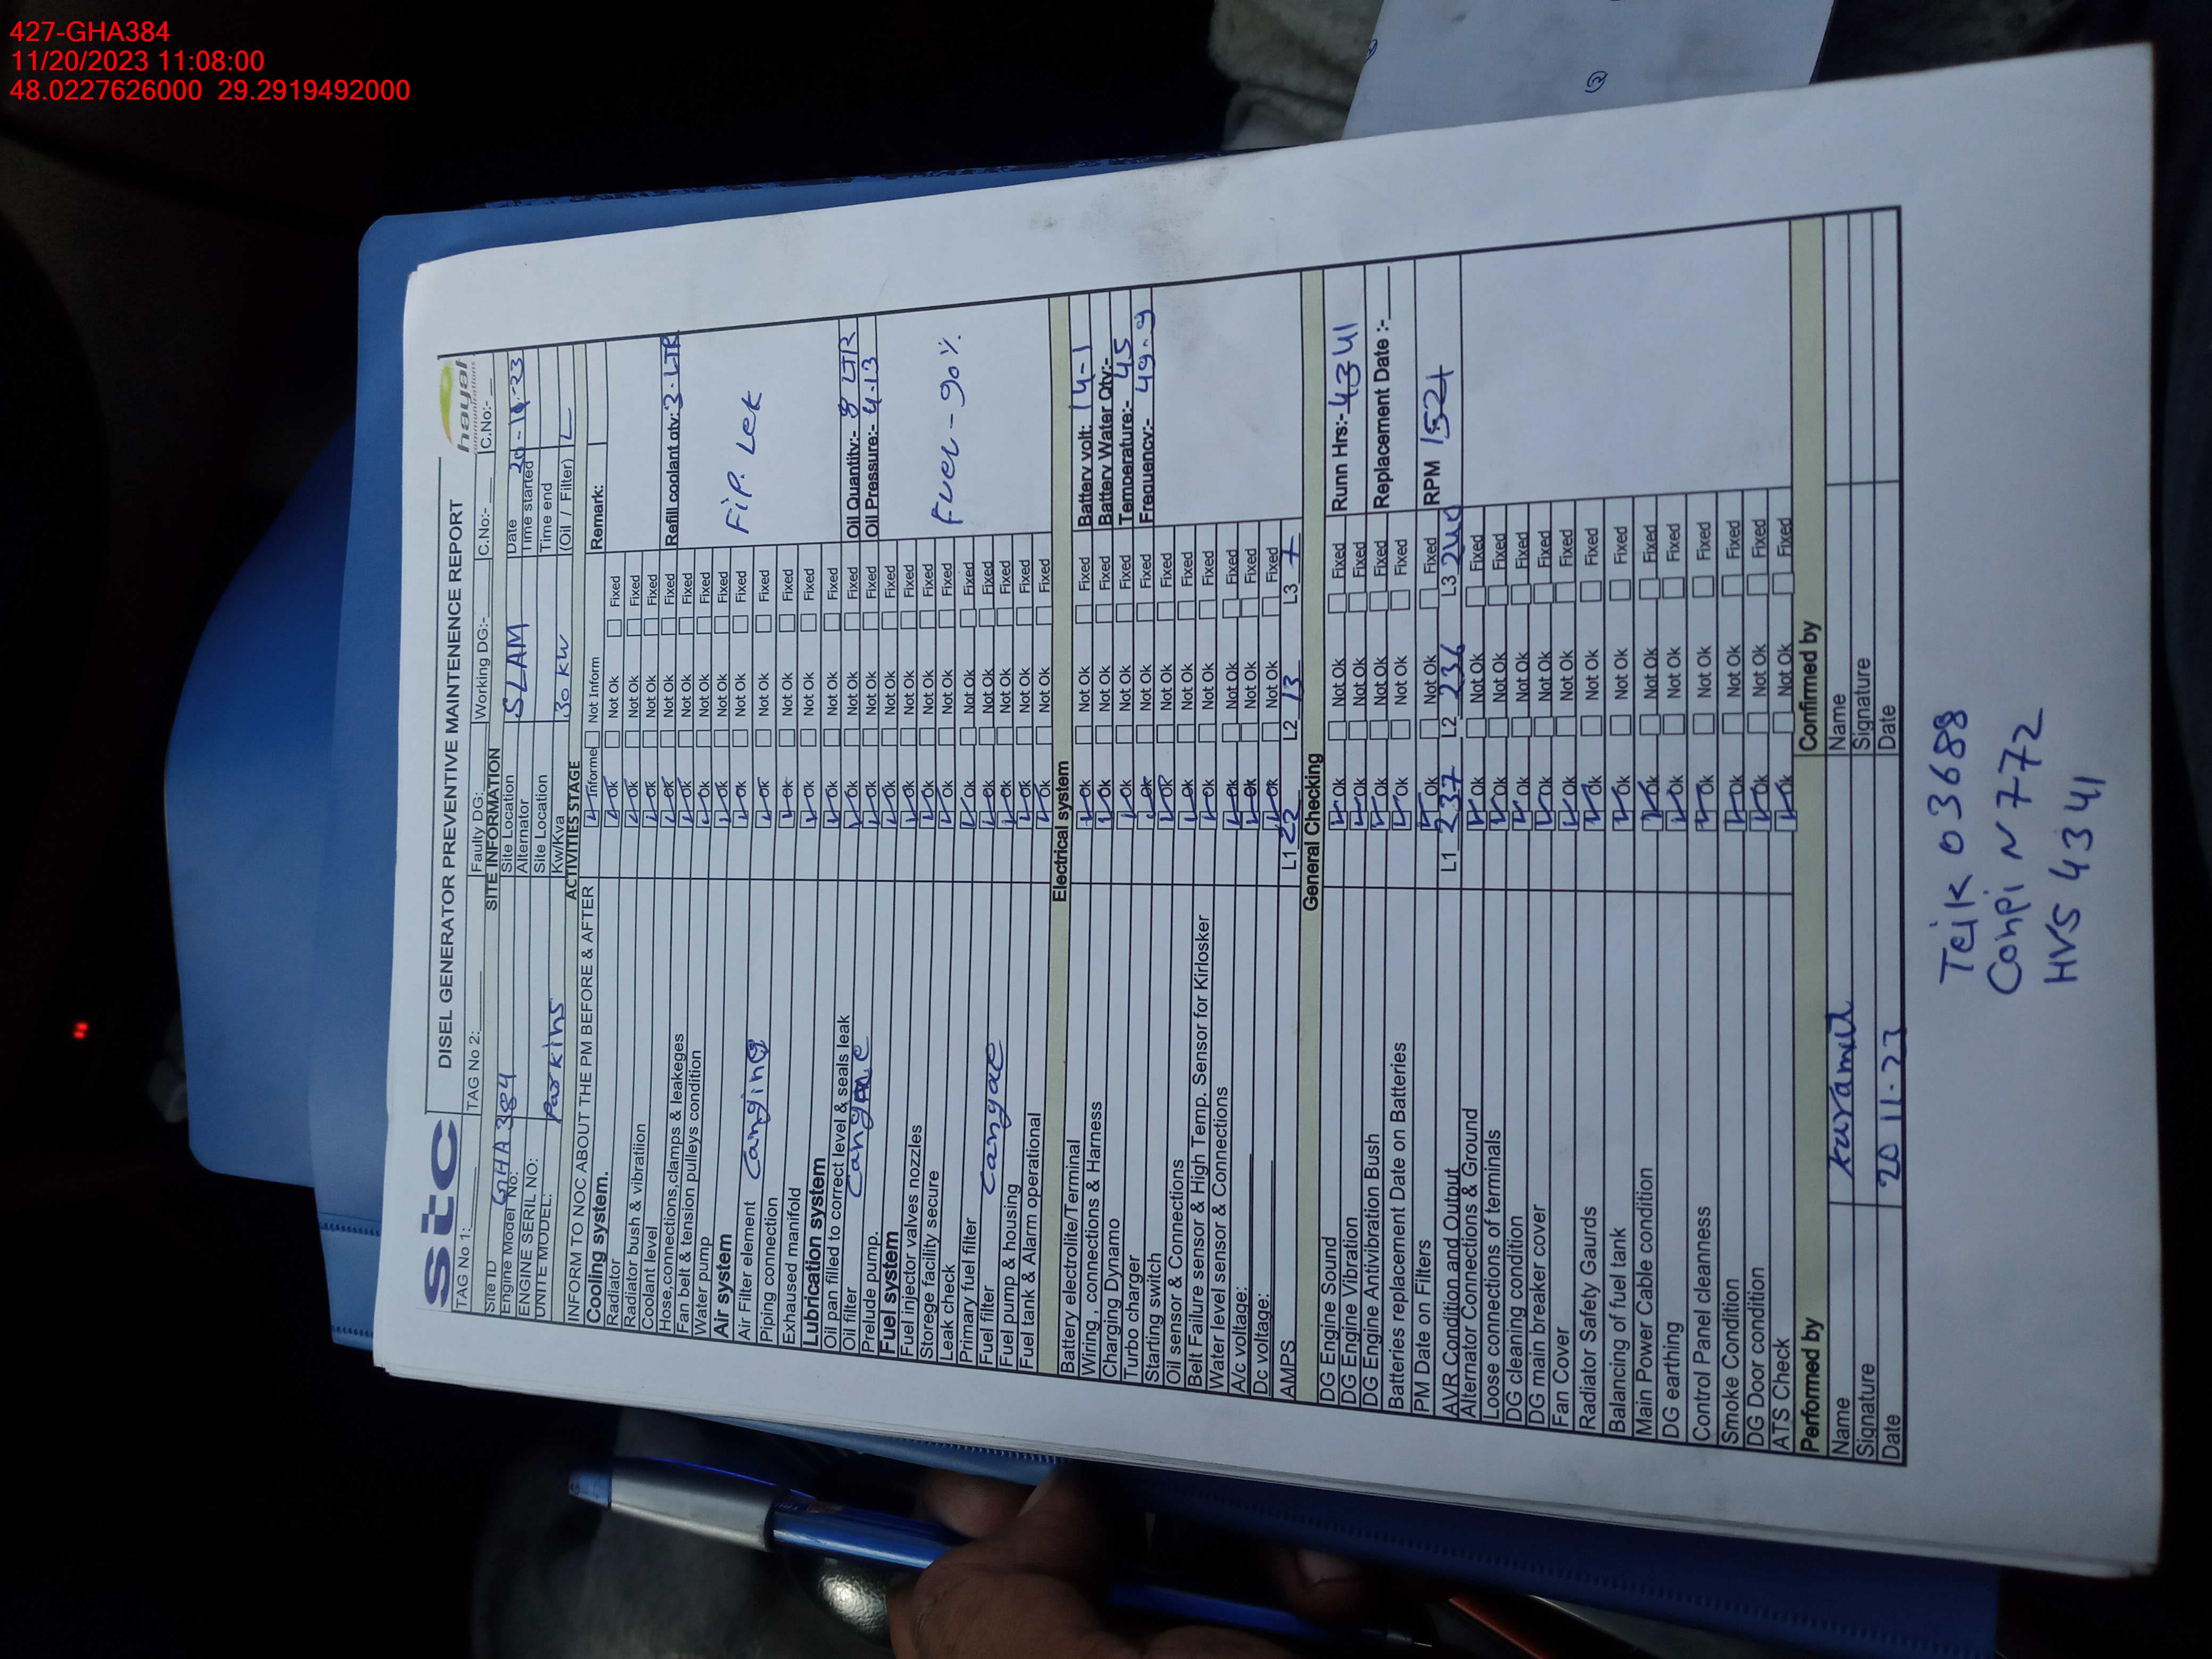 427-GHA384
11/20/2023 11:08:00
48.0227626000 29.2919492000
stc
DISEL GENERATOR PREVENTIVE MAINTENENCE REPORT
hayat
TAG No 1: TAG No 2: Faulty DG: Working DG:- C.No:- C.No:-
SITE INFORMATION
Site ID GHA 384 Site Location SLAM Date 20-11-23
Engine Model No: Alternator Time started
ENGINE SERIL NO: Site Location Time end
UNITE MODEL: Parkins Kw/Kva 30 KW (Oil / Filter) L
ACTIVITIES STAGE
INFORM TO NOC ABOUT THE PM BEFORE & AFTER Informed Not Inform Remark:
Cooling system.
Radiator Ok Not Ok Fixed
Radiator bush & vibratiion Ok Not Ok Fixed
Coolant level Ok Not Ok Fixed
Hose,connections,clamps & leakeges Ok Not Ok Fixed Refill coolant qty: 3-LTR
Fan belt & tension pulleys condition Ok Not Ok Fixed
Water pump Ok Not Ok Fixed
Air system Ok Not Ok Fixed
Air Filter element Canging Ok Not Ok Fixed FiP. Lek
Piping connection Ok Not Ok Fixed
Exhaused manifold Ok Not Ok Fixed
Lubrication system Ok Not Ok Fixed
Oil pan filled to correct level & seals leak Ok Not Ok Fixed
Oil filter Ok Not Ok Fixed Oil Quantity:- 8 LTR
Prelude pump. Ok Not Ok Fixed Oil Pressure:- 4.13
Fuel system Ok Not Ok Fixed
Fuel injector valves nozzles Ok Not Ok Fixed
Storege facility secure Ok Not Ok Fixed
Leak check Ok Not Ok Fixed Fuel-90%
Primary fuel filter Ok Not Ok Fixed
Fuel filter cangae Ok Not Ok Fixed
Fuel pump & housing Ok Not Ok Fixed
Fuel tank & Alarm operational Ok Not Ok Fixed
Electrical system
Battery electrolite/Terminal Ok Not Ok Fixed Battery volt: 14-1
Wiring , connections & Harness Ok Not Ok Fixed Battery Water Qty:-
Charging Dynamo Ok Not Ok Fixed Temperature:- 45
Turbo charger Ok Not Ok Fixed Frequency:- 49-9
Starting switch Ok Not Ok Fixed
Oil sensor & Connections Ok Not Ok Fixed
Belt Failure sensor & High Temp. Sensor for Kirlosker Ok Not Ok Fixed
Water level sensor & Connections Ok Not Ok Fixed
A/c voltage: Ok Not Ok Fixed
Dc voltage: Ok Not Ok Fixed
AMPS L1 22 L2 13 L3 7
General Checking
DG Engine Sound Ok Not Ok Fixed Runn Hrs:- 4341
DG Engine Vibration Ok Not Ok Fixed
DG Engine Antivibration Bush Ok Not Ok Fixed Replacement Date :-
Batteries replacement Date on Batteries Ok Not Ok Fixed
PM Date on Filters Ok Not Ok Fixed RPM 1521
AVR Condition and Output L1 237 L2 236 L3 240
Alternator Connections & Ground Ok Not Ok Fixed
Loose connections of terminals Ok Not Ok Fixed
DG cleaning condition Ok Not Ok Fixed
DG main breaker cover Ok Not Ok Fixed
Fan Cover Ok Not Ok Fixed
Radiator Safety Gaurds Ok Not Ok Fixed
Balancing of fuel tank Ok Not Ok Fixed
Main Power Cable condition Ok Not Ok Fixed
DG earthing Ok Not Ok Fixed
Control Panel cleanness Ok Not Ok Fixed
Smoke Condition Ok Not Ok Fixed
DG Door condition Ok Not Ok Fixed
ATS Check Ok Not Ok Fixed
Performed by Confirmed by
Name Name
Signature Signature
Date 20 11-23 Date
Teik 03688
Conpi N 772
HVS 4341